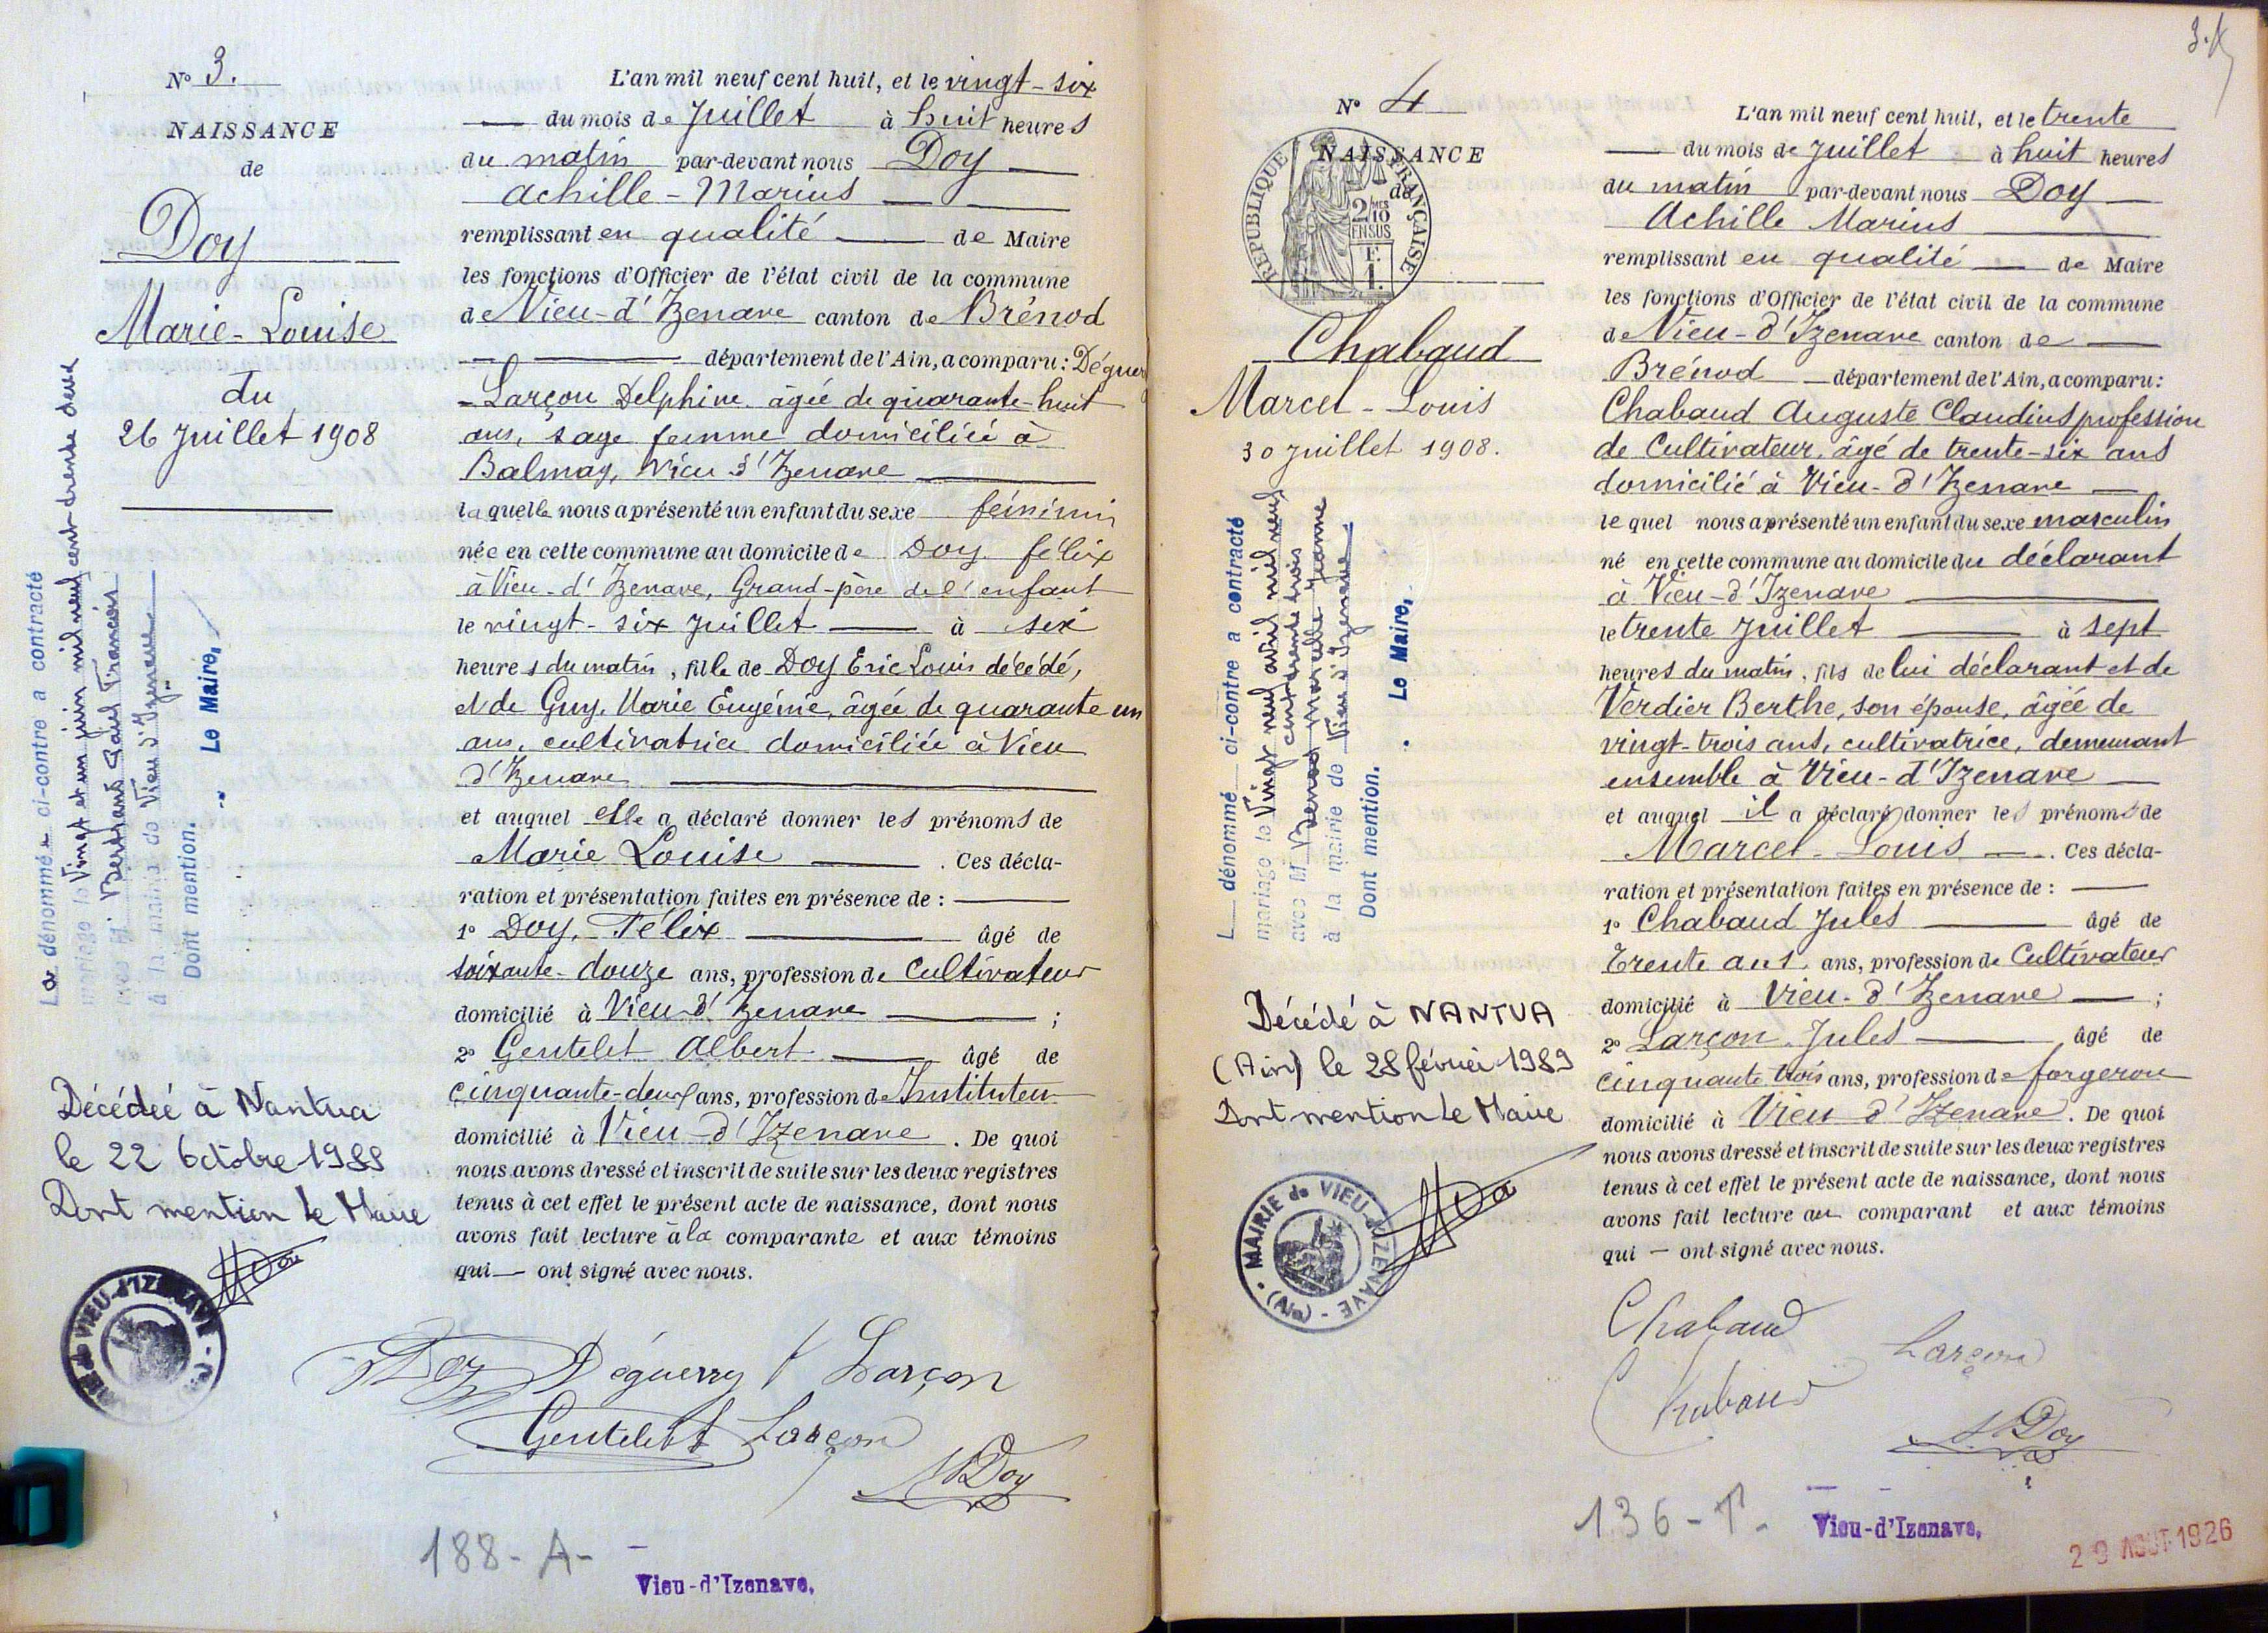 N° 3.
NAISSANCE
de
Doy
Marie-Louise
du
26 Juillet 1908
La dénommée ci-contre a contracté
mariage le Vingt et un juin mil neuf cent trente deux
avec M Bertrand Paul Francois
à la mairie de Vieu d'Izenave
Dont mention.
Le Maire,
Décédée à Nantua
le 22 Octobre 1988
Dont mention le Maire
MAIRIE de VIEU-d'IZENAVE
L'an mil neuf cent huit, et le vingt-six
du mois de Juillet à huit heures
du matin par-devant nous Doy
Achille-Marius
remplissant en qualité de Maire
les fonctions d'Officier de l'état civil de la commune
de Vieu-d'Izenave canton de Brénod
département de l'Ain, a comparu: Déguerry
-Larçon Delphine âgée de quarante-huit
ans, sage femme domiciliée à
Balmay, Vieu d'Izenave
laquelle nous a présenté un enfant du sexe féminin
née en cette commune au domicile de Doy félix
à Vieu-d'Izenave, Grand-père de l'enfant
le vingt-six Juillet à six
heures du matin, fille de Doy Eric Louis décédé,
et de Guy, Marie Eugénie, âgée de quarante un
ans, cultivatrice domiciliée à Vieu
d'Izenave
et auquel elle a déclaré donner les prénoms de
Marie Louise. Ces décla-
ration et présentation faites en présence de:
1° Doy, Félix âgé de
soixante-douze ans, profession de Cultivateur
domicilié à Vieu-d'Izenave;
2° Gentelet Albert âgé de
cinquante-deux ans, profession de Instituteur
domicilié à Vieu-d'Izenave. De quoi
nous avons dressé et inscrit de suite sur les deux registres
tenus à cet effet le présent acte de naissance, dont nous
avons fait lecture à la comparante et aux témoins
qui ont signé avec nous.
Doy Déguerry Larçon
Gentelet Larçon
Doy
188-A-
Vieu-d'Izenave,
3.
N° 4
NAISSANCE
de
REPUBLIQUE FRANÇAISE
2/10
EN SUS
F.
1.
Chabaud
Marcel-Louis
30 Juillet 1908.
L dénommé ci-contre a contracté
mariage le Vingt neuf avril mil neuf
cent trente trois
avec M Benod Marcelle Jeanne
à la mairie de Vieu d'Izenave
Dont mention.
Le Maire,
Décédé à NANTUA
(Ain) le 28 février 1989
Dont mention le Maire
MAIRIE de VIEU-d'IZENAVE
(Ain)
L'an mil neuf cent huit, et le trente
du mois de Juillet à huit heures
du matin par-devant nous Doy
Achille Marius
remplissant en qualité de Maire
les fonctions d'Officier de l'état civil de la commune
de Vieu-d'Izenave canton de
Brénod département de l'Ain, a comparu:
Chabaud Auguste Claudius profession
de Cultivateur, âgé de trente-six ans
domicilié à Vieu-d'Izenave
lequel nous a présenté un enfant du sexe masculin
né en cette commune au domicile du déclarant
à Vieu-d'Izenave
le trente Juillet à sept
heures du matin, fils de lui déclarant et de
Verdier Berthe, son épouse, âgée de
vingt-trois ans, cultivatrice, demeurant
ensemble à Vieu-d'Izenave
et auquel il a déclaré donner les prénoms de
Marcel-Louis. Ces décla-
ration et présentation faites en présence de:
1° Chabaud Jules âgé de
Trente ans, ans, profession de Cultivateur
domicilié à Vieu-d'Izenave;
2° Larçon Jules âgé de
cinquante trois ans, profession de forgeron
domicilié à Vieu d'Izenave. De quoi
nous avons dressé et inscrit de suite sur les deux registres
tenus à cet effet le présent acte de naissance, dont nous
avons fait lecture au comparant et aux témoins
qui ont signé avec nous.
Chabaud
Larçon
Chabaud
Doy
136-T-
Vieu-d'Izenave,
20 AOUT 1926